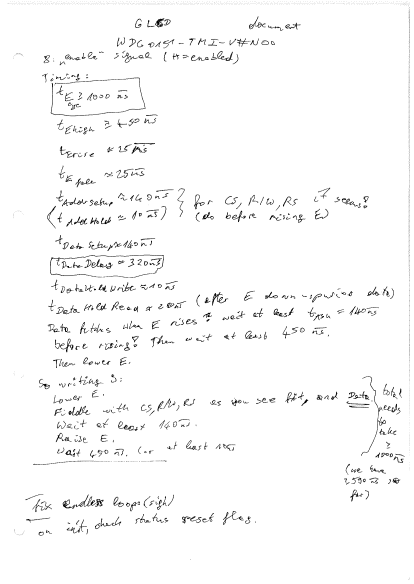 GLCD document
WDG0151-TMI-V#N00
8: "enable" signal (H=enabled)
Timing:
tE cyc ≥ 1000 ns
tE high ≥ 450 ns
tE rise ≈ 25 ns
tE fall ≈ 25 ns
tAddrSetup ≈ 140 ns } for CS, R/W, RS it seems?
(tAddrHold ≈ 10 ns) } (do before rising E)
tDataSetup ≈ 140 ns
tDataDelay ≈ 320 ns
tDataHoldWrite ≈ 10 ns
tDataHoldRead ≈ 20 ns (after E down spurious data)
Data fetches when E rises? wait at least tASU = 140 ns
before rising? Then wait at least 450 ns.
Then lower E.
So writing is:
Lower E.
Fiddle with CS, R/W, RS as you see fit, and Data
Wait at least 140 ns.
Raise E.
Wait 450 ns. (or at least
total needs to take ≥ 1000 ns
(we have ≥ 590 ns so far)
Fix endless loops (sigh)
on init, check status reset flag.